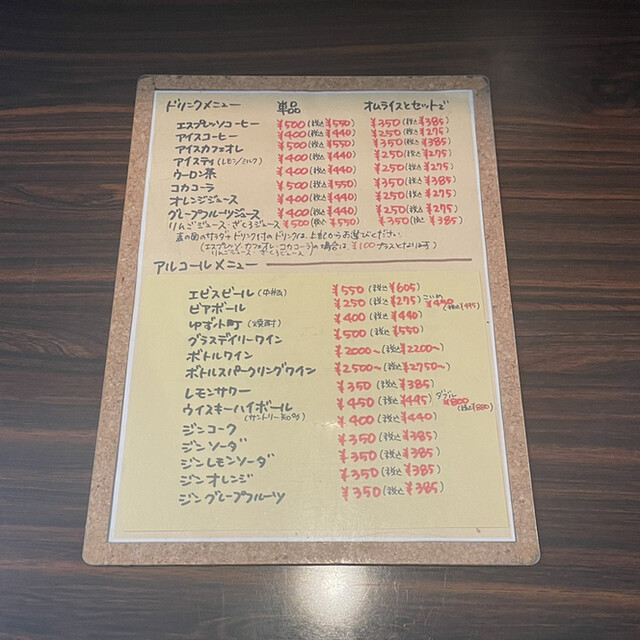 ドリンクメニュー 単品 オムライスとセットで
エスプレッソコーヒー ¥500(税込¥550) ¥350(税込¥385)
アイスコーヒー ¥400(税込¥440) ¥250(税込¥275)
アイスカフェオレ ¥500(税込¥550) ¥350(税込¥385)
アイスティ(レモン/ミルク) ¥400(税込¥440) ¥250(税込¥275)
ウーロン茶 ¥400(税込¥440) ¥250(税込¥275)
コカコーラ ¥500(税込¥550) ¥350(税込¥385)
オレンジジュース ¥400(税込¥440) ¥250(税込¥275)
グレープフルーツジュース ¥400(税込¥440) ¥250(税込¥275)
りんごジュース・ざくろジュース ¥500(税込¥550) ¥350(税込¥385)
裏の面のサラダ+ドリンク付のドリンクは、上記からお選びください。
(エスプレッソ・カフェオレ・コカコーラの場合は、¥100プラスとなります)
りんごジュース・ざくろジュース
アルコールメニュー
エビスビール(中瓶) ¥550(税込¥605)
ビアボール ¥250(税込¥275) こいめ ¥450(税込¥495)
ゆず小町(焼酎) ¥400(税込¥440)
グラスデイリーワイン ¥500(税込¥550)
ボトルワイン ¥2000〜(税込¥2200〜)
ボトルスパークリングワイン ¥2500〜(税込¥2750〜)
レモンサワー ¥350(税込¥385)
ウイスキーハイボール ¥450(税込¥495) ダブル ¥800(税込¥880)
(サントリー
ジンコーク ¥400(税込¥440)
ジンソーダ ¥350(税込¥385)
ジンレモンソーダ ¥350(税込¥385)
ジンオレンジ ¥350(税込¥385)
ジングレープフルーツ ¥350(税込¥385)